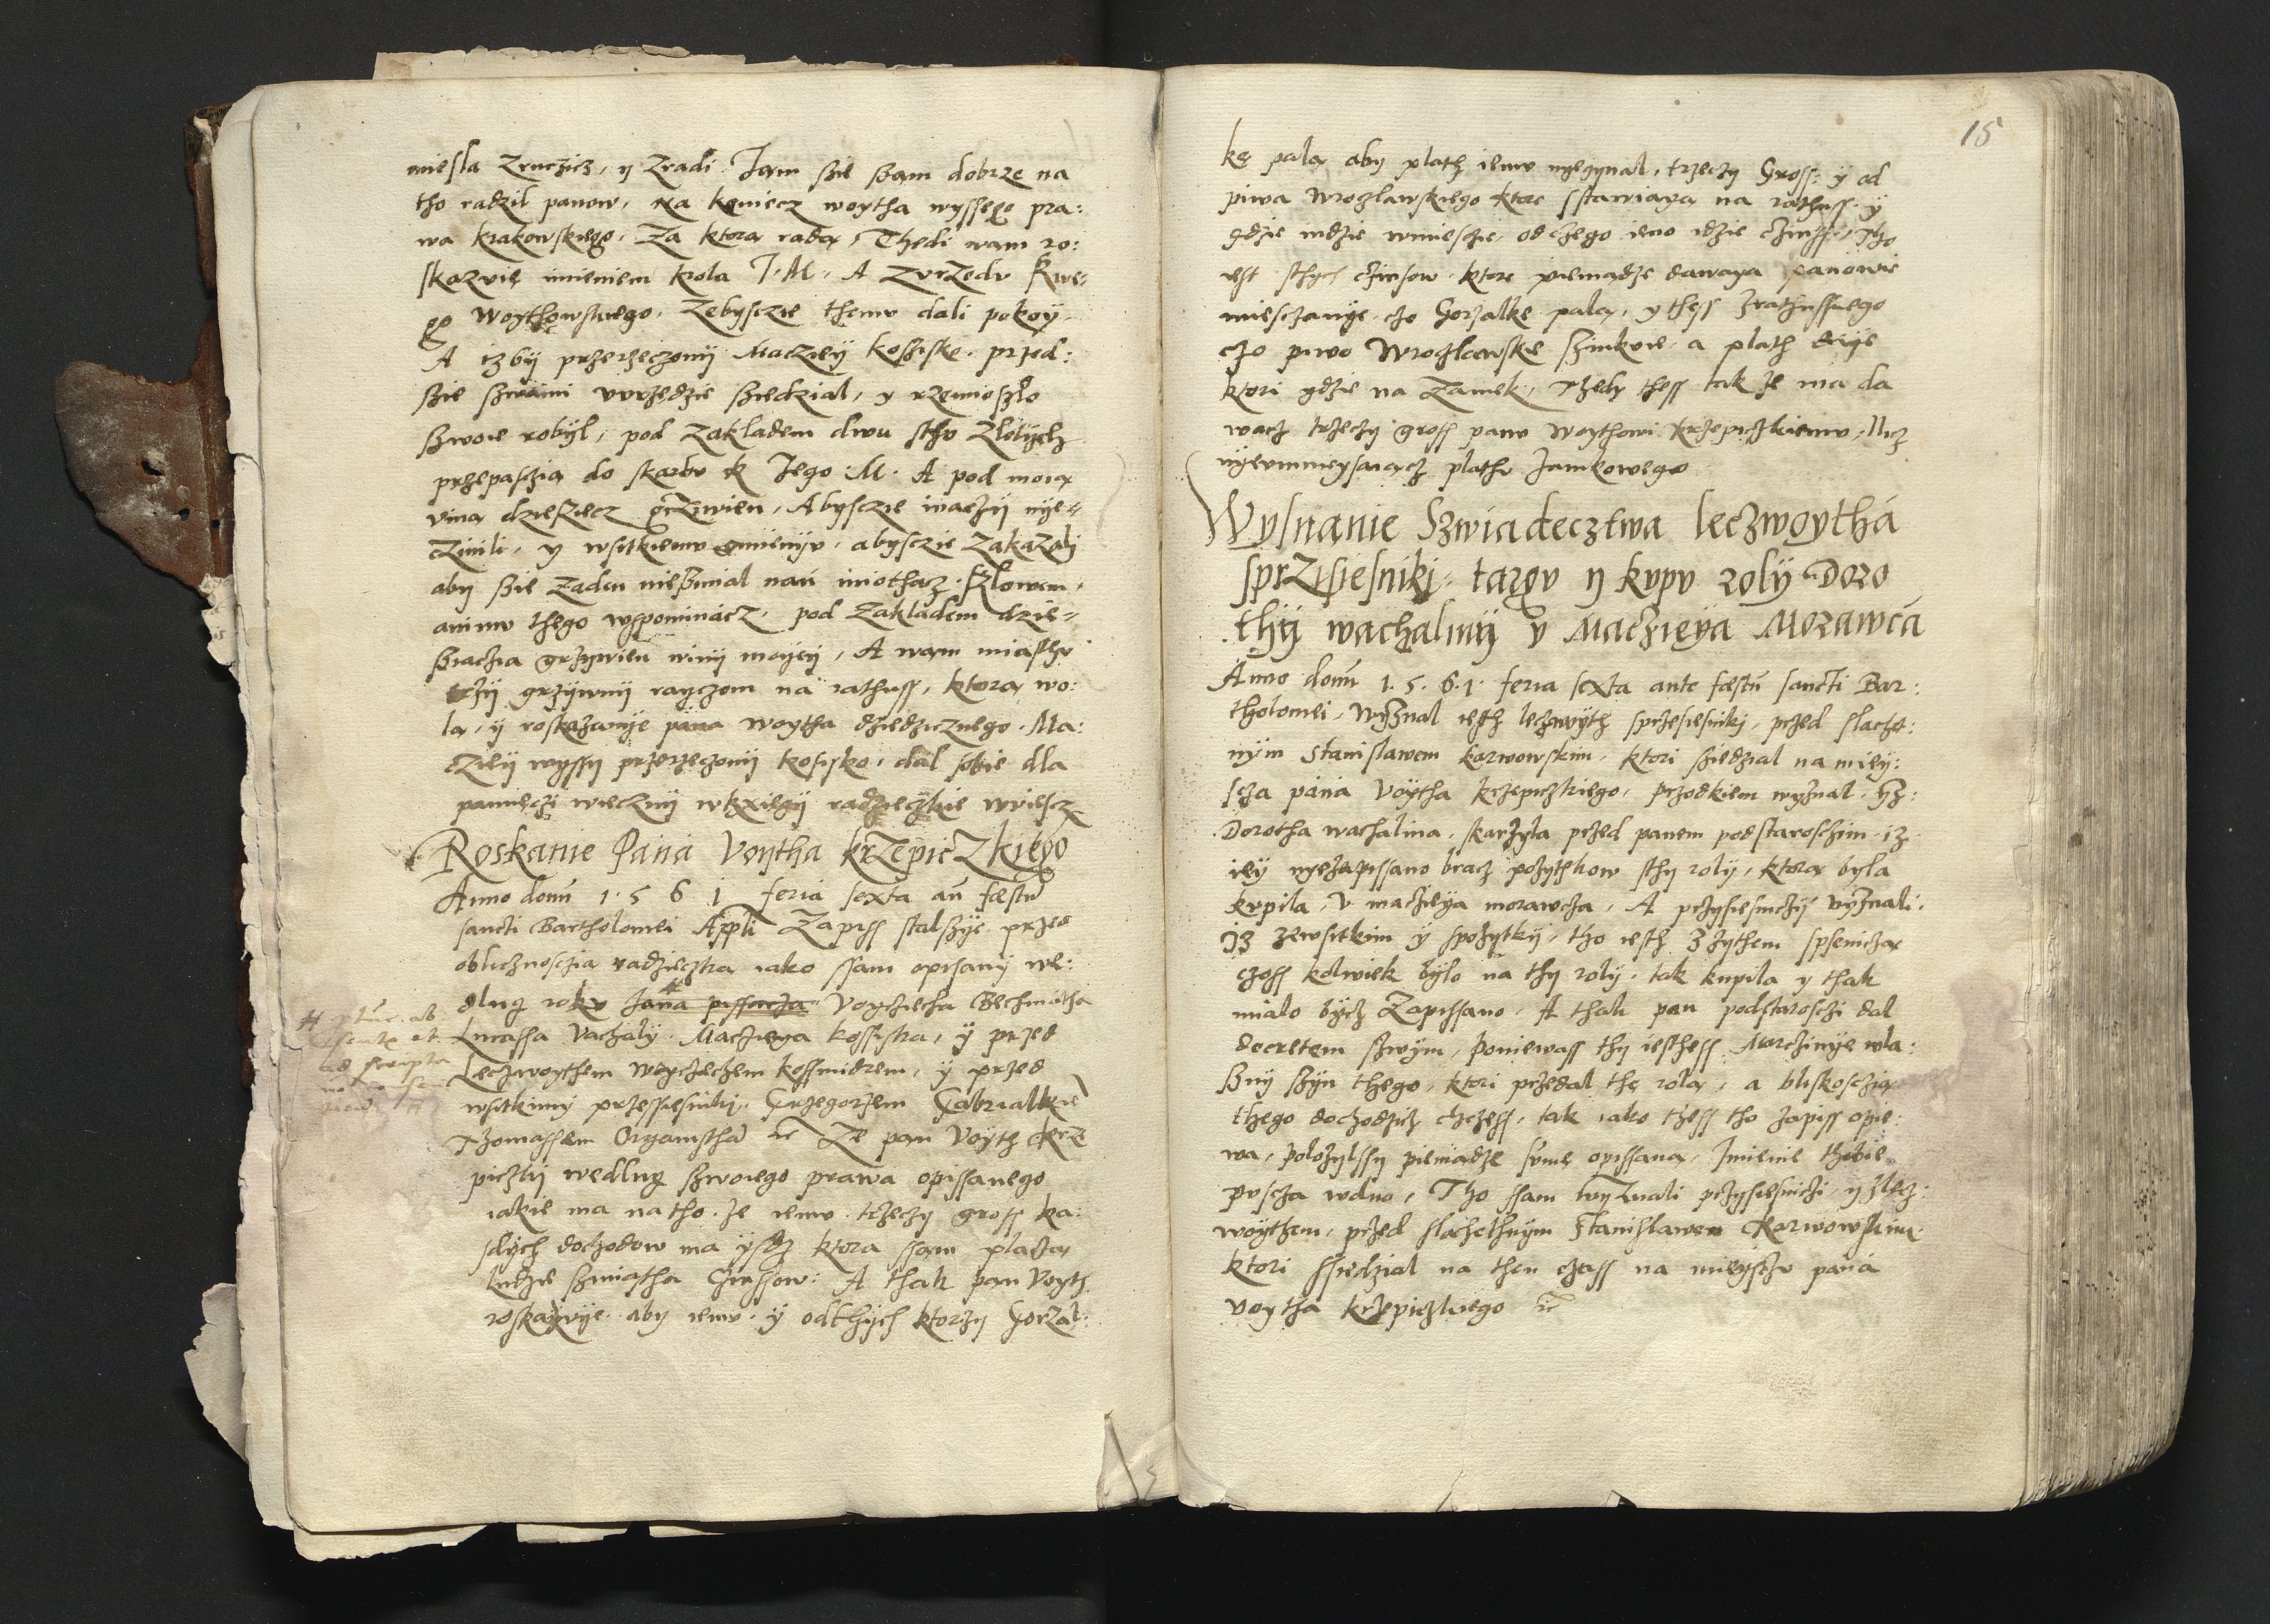 miesla Zruczicz, y Zradi Jam szie szam dobrze na
tho radzil panow, Na koniecz woytha wyssego pra:
wa krakowskiego, Za ktora rada, Thedi wam ro:
skazuie imieniem krola J. M. A Zvrzedv
go Woythowskiego, Zebysczie themv dali pokoy
A izby przerzeczonij Macziey kossisko. przed:
szie szwami vvrzedzie sziedzial, y rzemioszlo
szwoie robyl, pod Zakladem dwu sthv Zlotych
przepasczia do skarbv k Jego M. A pod moia
vina dziesziecz grziwien, Abysczie inaczij nye=
czinili, y wsitkiemv, abysczie Zakazali
aby szie Zaden nieszmial nan miothacz szlowem,
animv thego wspominacz, pod Zakladem dzie=
sziaczia grzywien winy moyey, A wam miasthv
trzy grzywny rayczom na rathuss, ktora wo:
la, y roskazanye pana woytha dziedzicznego Ma:
cziey wyssy przerzeczony kosisko, dal sobie dla
pamieczi wieczny wkxiegy radzieczkie wpiescz
Roskanie Pana Voytha krzepiczkiego
Anno domi 1 5 6 1 feria sexta an festum
sancti Bartholomei Appli Zapiss stalszye przed
oblicznosczia radzieczka iako ssam opisany we:
dlug rokv Jana pissarza Voycziecha Bechmatha
Lucassa Vachaly Macziega kossiska, y przed
Leczwoythem woyczechem kossmidrem, y przed
wsitkimy przessiesniki, Grzegorzem Gabrialkie
Thomassem Organistha etc Ze pan Voyth krze
piczky wedlug szwoiego prawa opissanego
iakie ma natho ze iemv trzeczy gross ka:
sdych dochodow ma ysdz ktora ssam placza
ludzie szmiastha Czinssow: A thak pan Voyth
roskazvye aby iemv y odthych ktorzy Gorzal:
15
ke pala aby plath iemv nyegynal, trzeczy Gross: y od
piwa Wroczlawskiego ktore sstawiaya na rathuss y
gdzie indzie wmiesczie, od czego ieno idzie Czinss, Tho
iest sthych czinsow ktore pieniadze dawaya panowie
miesczanye czo Gorzalke pala, y thess Zrathussnego
czo piwo Wroczlawskie szinkuie a plath
ktori gdzie na Zamek, Thedy thess tak ze ma da
wacz trzeczy gross panv Woythowi krzepiczkiemv, Nicz
nyevmnieysaiacz plathv Zamkowego
Wysnanie Szwiadecztwa leczwoytha
sprzisiesniki targv y kvpv roly Doro
thy wachaliny v Maczieya Morawca
Anno domi 1.5.6.1. feria sexta ante festum sancti Bar:
tholomei, Wyznal iesth leczwoyth sprzesiesniki, przed slachet:
nym Stanislawem karwowskim, ktori szieдzial na miey:
scza pana Voytha krzepiczkiego, przodkiem wyznal yz:
Dorotha wachalina, skarzyla przed panem podstaroschim iz
iey nyezapissano bracz pozythkow sthy roly, ktora byla
kvpila, v maczieya morawcza, A przysiesniczy vyznali
Jz zewsitkim y spozytky, tho iesth Zzythem spsenicza
czoss kolwiek bylo na thy roly tak kupila y thak
mialo bycz Zapissano, A thak pan podstaroschi dal
decretem szwym, Poniewass thy iesthess Marczinye wla:
szny szyn thego, ktori przedal the rola, a bliskosczia
thego dochodzicz chczess, tak iako thess tho zapiss opie:
wa, polozylssy pieniadze svme opissana, Jmienie thobie
pvscza wdno, Tho ssam wyznali przysiesniczi, y zlecz:
woythem, przed slachethnym Stanislawem Karwowskim
ktori ssiedzial na then czass na mieysczv pana
voytha krzepiczkiego etc